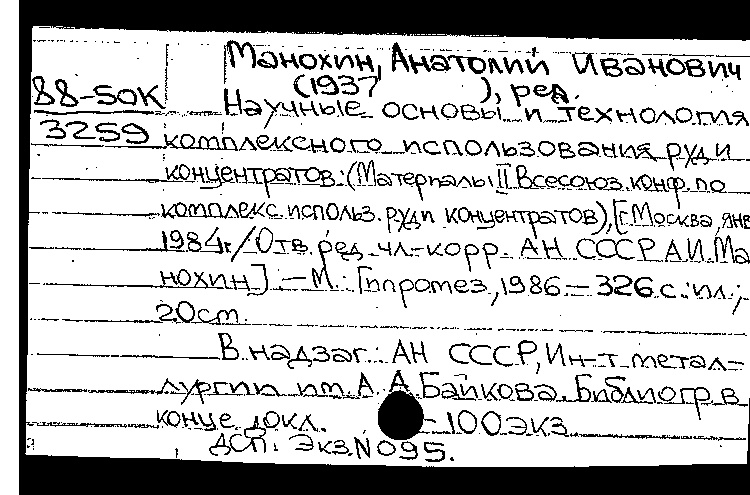 Манохин, Анатолий Иванович
(1937 ), ред.
88-50К
3259
Научные основы и технология
комплексного использования руд и
концентратов: (Материалы II Всесоюз. конф. по
комплекс. использ. руд и концентратов), [г. Москва, янв
1984г. / Отв. ред. чл.-корр. АН СССР А.И. Ма
нохин]. — М.: Гипротез, 1986. — 326 с.: ил.;
20 cm.
В надзаг.: АН СССР, Ин-т метал-
лургии им. А. А. Байкова. Библиогр. в
конце докл. — 100 экз.
ДСП. Экз. N 095.